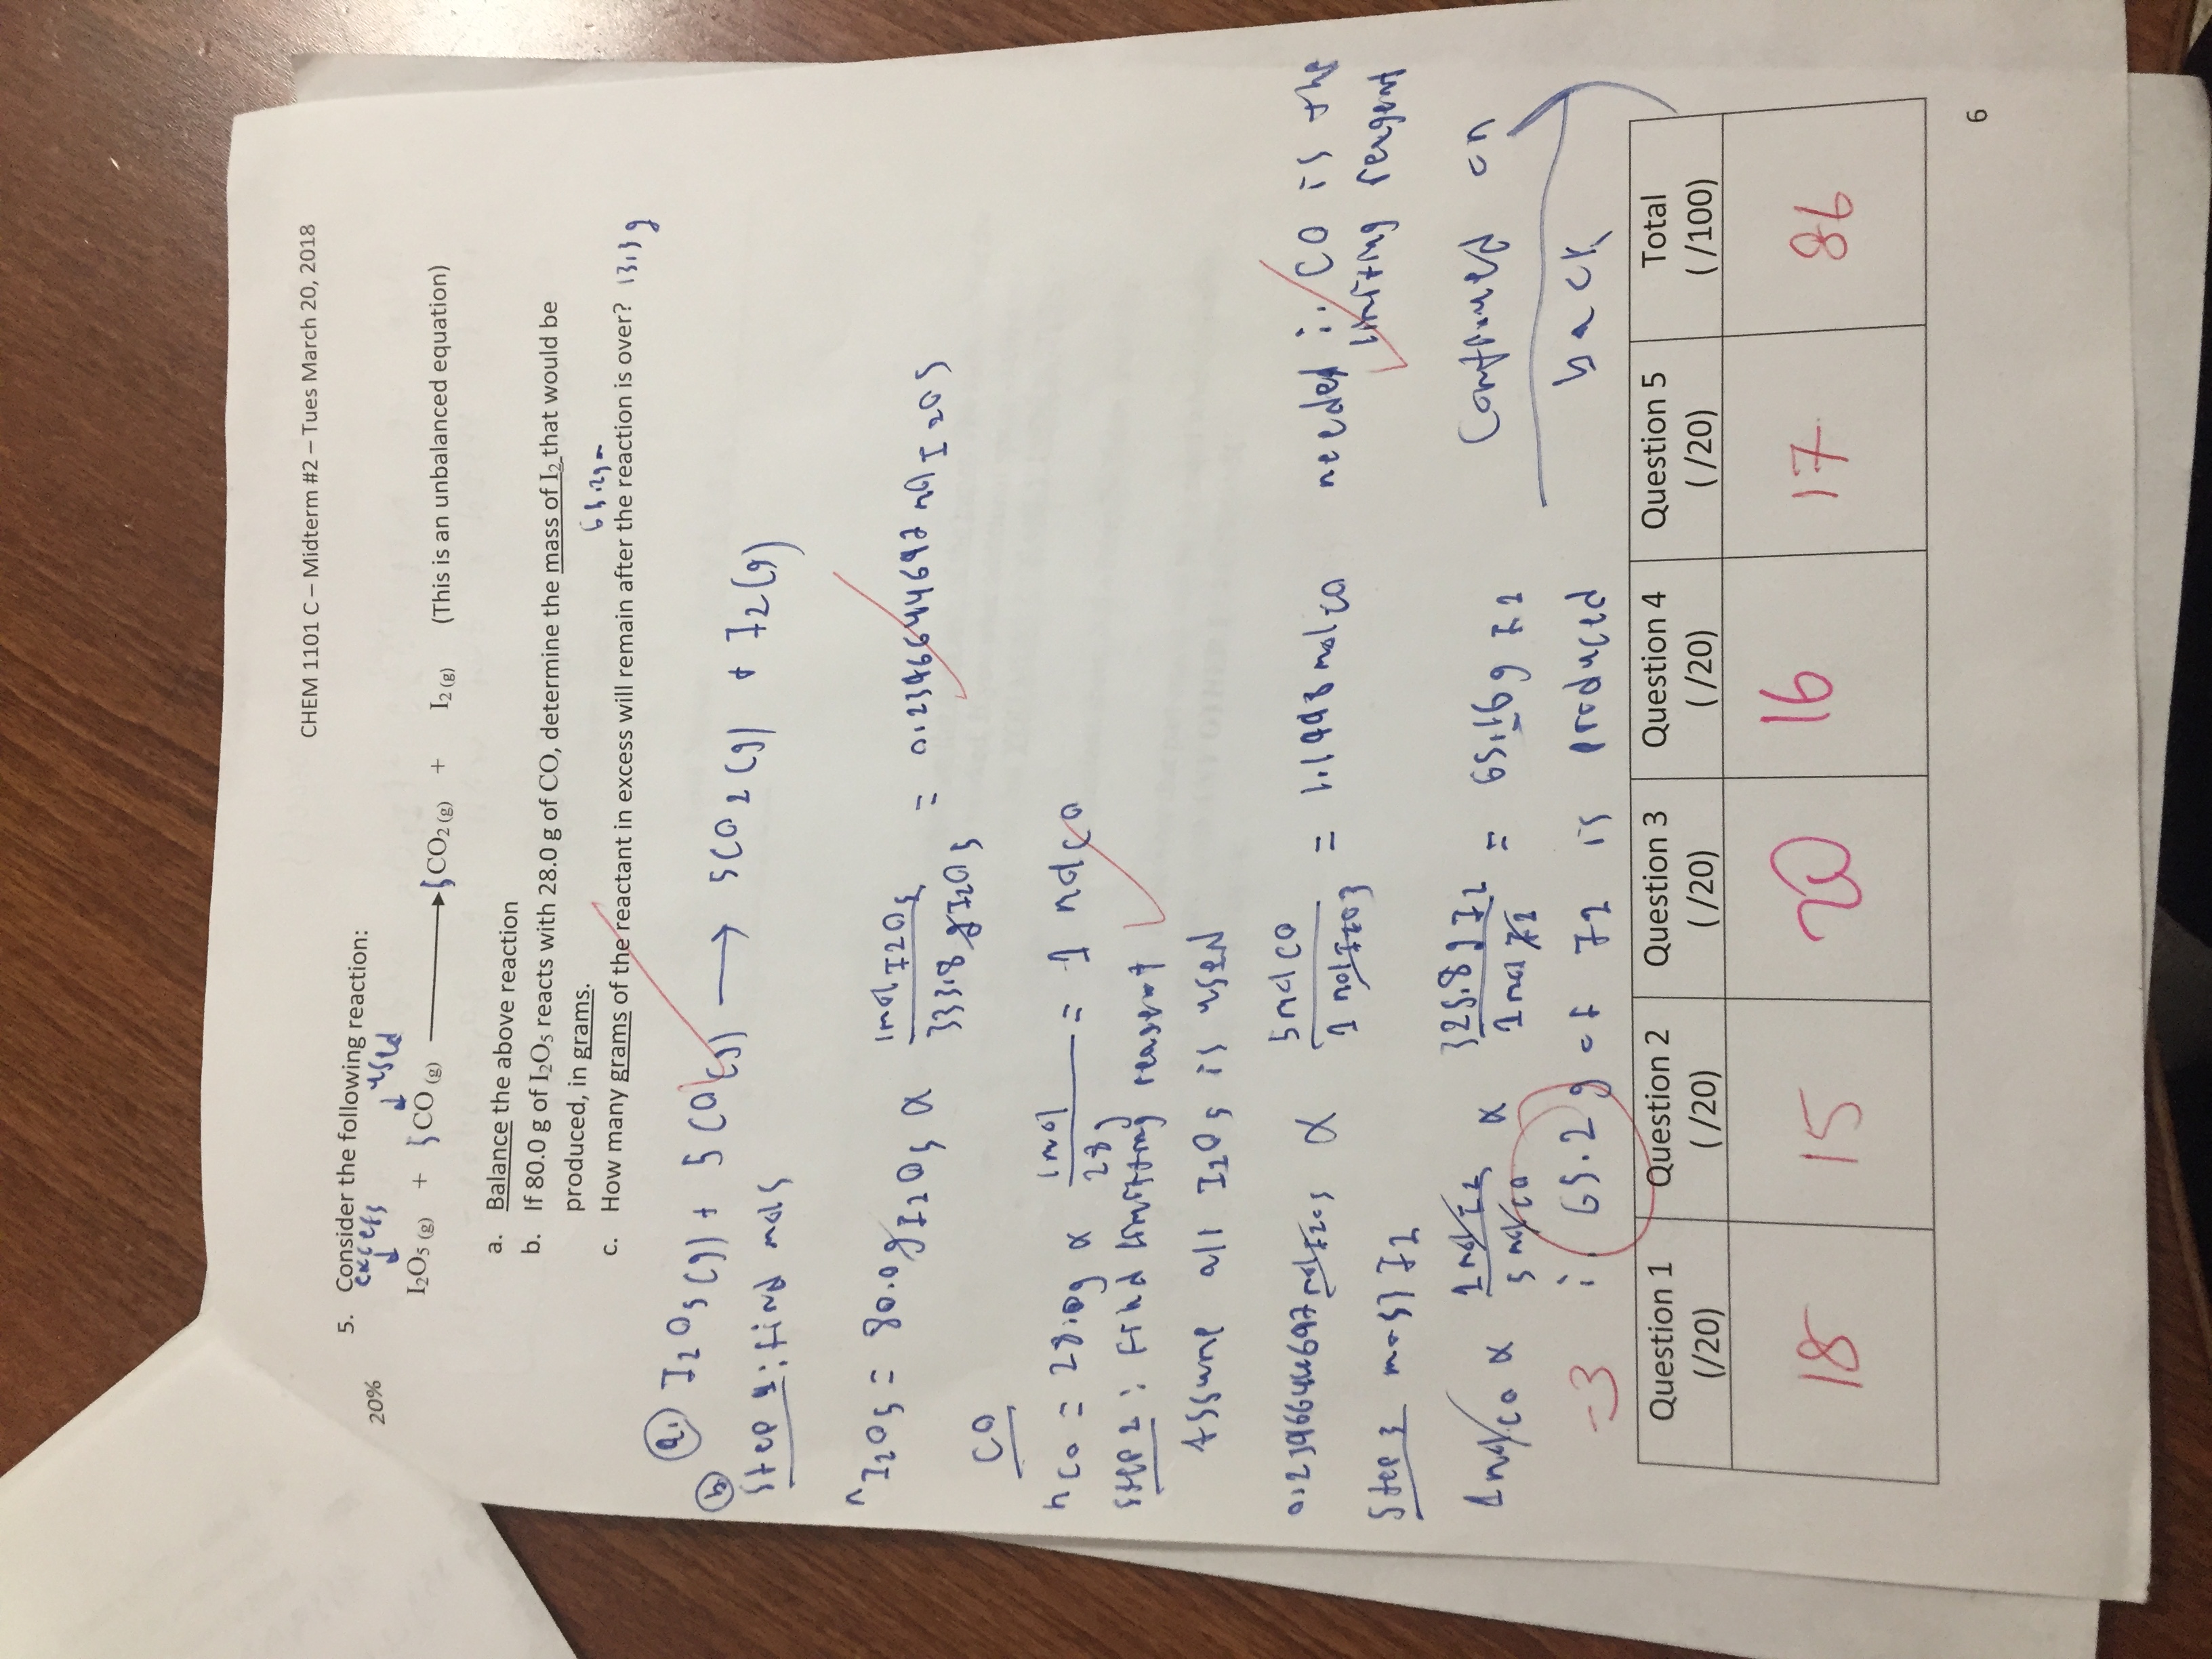 CHEM 1101 C – Midterm #2 – Tues March 20, 2018
20% 5. Consider the following reaction:
excess used
I2O5 (g) + 5CO (g) → 5CO2 (g) + I2 (g) (This is an unbalanced equation)
a. Balance the above reaction
b. If 80.0 g of I2O5 reacts with 28.0 g of CO, determine the mass of I2 that would be
produced, in grams.
c. How many grams of the reactant in excess will remain after the reaction is over? 13.3g
a. I2O5(g) + 5CO(g) → 5CO2(g) + I2(g)
b
Step 1: find mols
nI2O5 = 80.0g I2O5 x 1mol I2O5 / 333.8g I2O5 = 0.2396644697 mol I2O5
CO
nCO = 28.0g x 1mol / 28g = 1 mol CO
Step 2: Find limiting reagent
Assume all I2O5 is used
0.2396644697 mol I2O5 x 5 mol CO / 1 mol I2O5 = 1.198 mol CO needed ∴ CO is the
limiting reagent
Step 3 mass I2
1 mol CO x 1 mol I2 / 5 mol CO x 325.8 g I2 / 1 mol I2 = 65.16g I2
∴ 65.2 g of I2 is produced
-3
Continued on
back
Question 1 (/20) Question 2 (/20) Question 3 (/20) Question 4 (/20) Question 5 (/20) Total (/100)
18 15 20 16 17 86
6